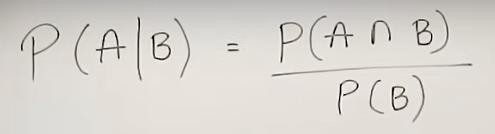 P(A|B) = P(A ∩ B)
P(B)